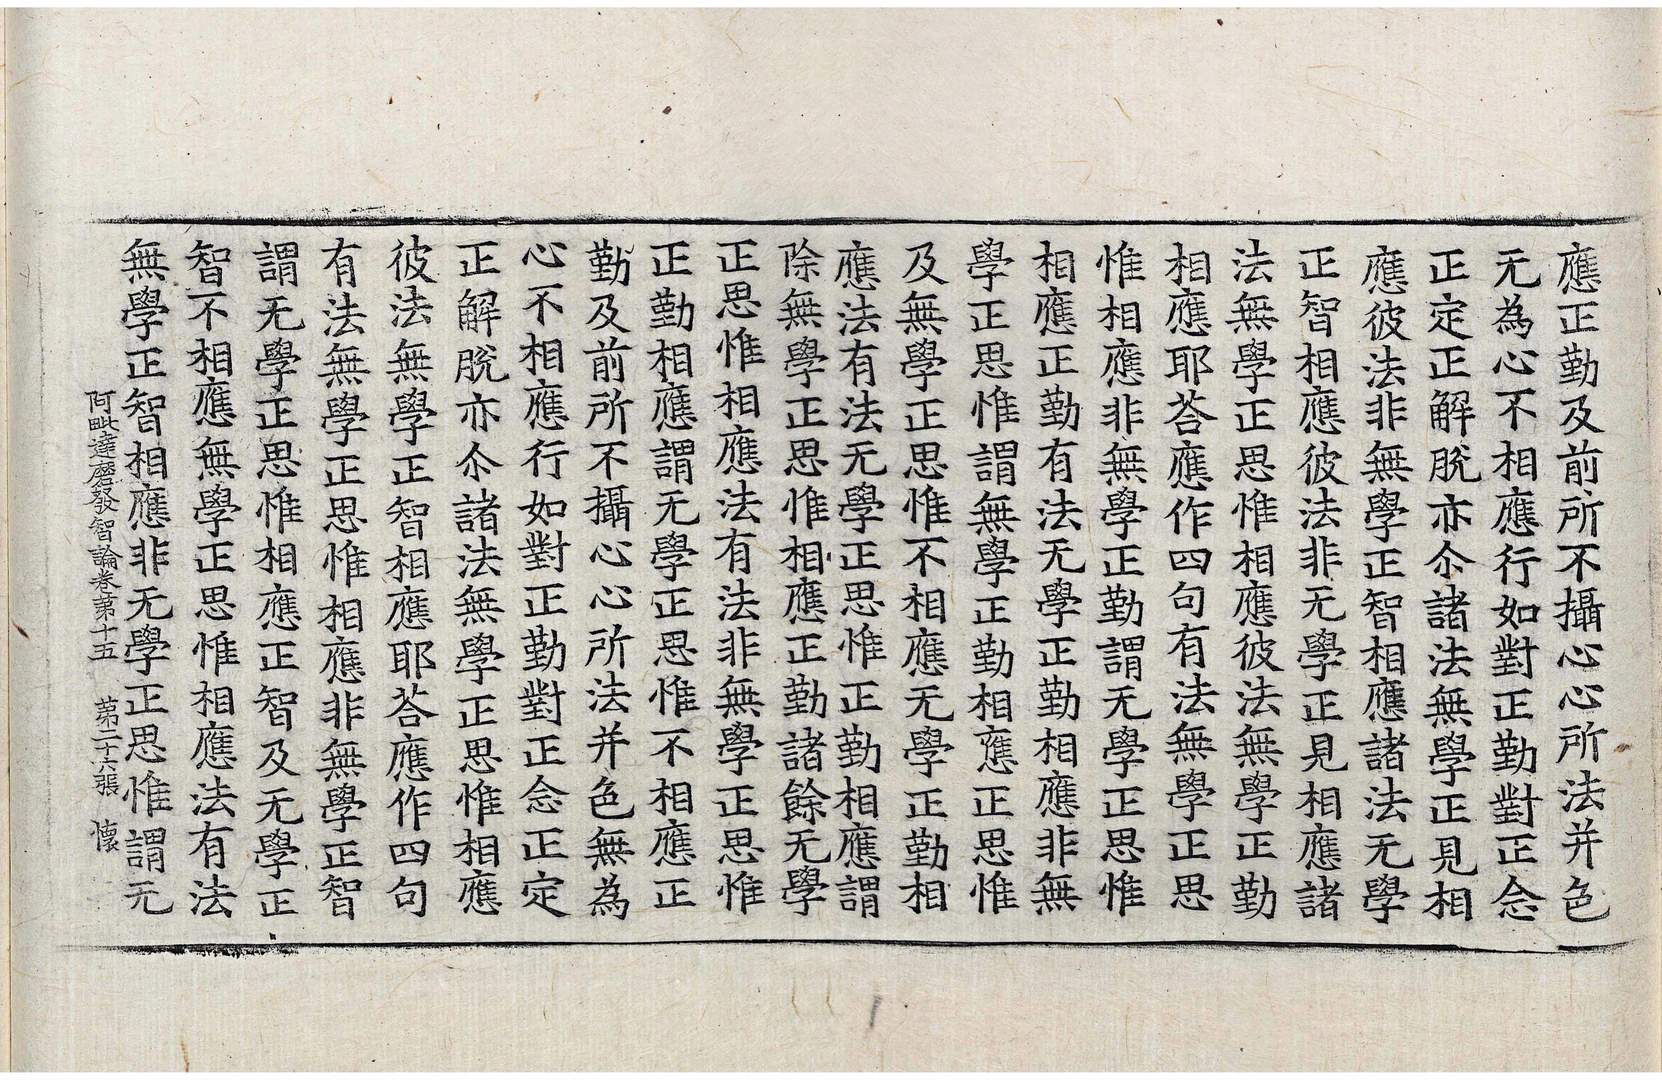 應正勤及前所不攝心心所法并色
无為心不相應行如對正勤對正念
正定正解脫亦尒諸法無學正見相
應彼法非無學正智相應諸法无學
正智相應彼法非无學正見相應諸
法無學正思惟相應彼法無學正勤
相應耶荅應作四句有法無學正思
惟相應非無學正勤謂无學正思惟
相應正勤有法无學正勤相應非無
學正思惟謂無學正勤相應正思惟
及無學正思惟不相應无學正勤相
應法有法无學正思惟正勤相應謂
除無學正思惟相應正勤諸餘无學
正思惟相應法有法非無學正思惟
正勤相應謂无學正思惟不相應正
勤及前所不攝心心所法并色無為
心不相應行如對正勤對正念正定
正解脫亦尒諸法無學正思惟相應
彼法無學正智相應耶荅應作四句
有法無學正思惟相應非無學正智
謂无學正思惟相應正智及无學正
智不相應無學正思惟相應法有法
無學正智相應非无學正思惟謂无
阿毗達磨發智論卷第十五 第二十六張 懷